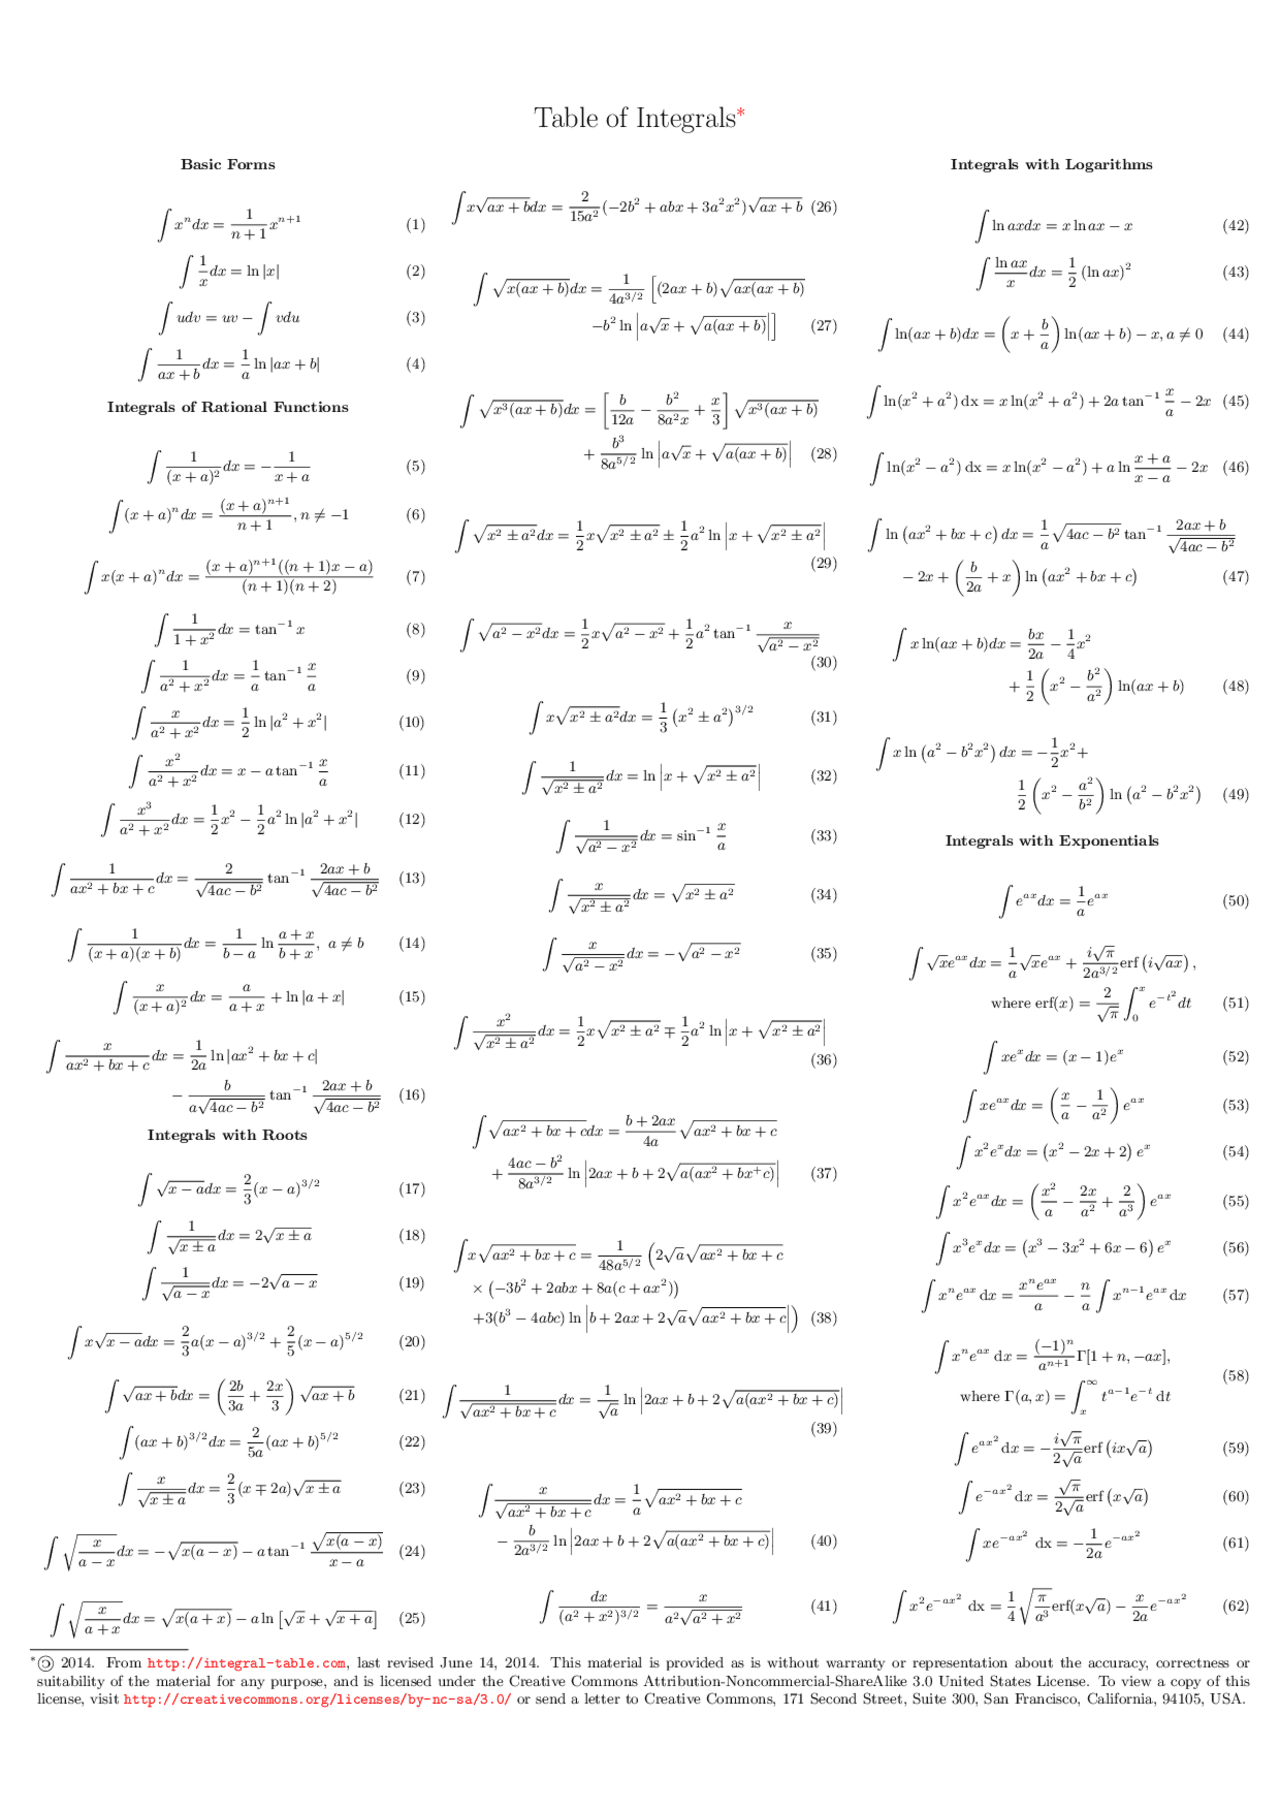 Table of Integrals*
Basic Forms
∫ xⁿdx = 1/(n + 1) xⁿ⁺¹ (1)
∫ 1/x dx = ln |x| (2)
∫ udv = uv − ∫ vdu (3)
∫ 1/(ax + b) dx = 1/a ln |ax + b| (4)
Integrals of Rational Functions
∫ 1/(x + a)² dx = −1/(x + a) (5)
∫ (x + a)ⁿdx = (x + a)ⁿ⁺¹/(n + 1), n ≠ −1 (6)
∫ x(x + a)ⁿdx = (x + a)ⁿ⁺¹((n + 1)x − a)/((n + 1)(n + 2)) (7)
∫ 1/(1 + x²) dx = tan⁻¹ x (8)
∫ 1/(a² + x²) dx = 1/a tan⁻¹ x/a (9)
∫ x/(a² + x²) dx = 1/2 ln |a² + x²| (10)
∫ x²/(a² + x²) dx = x − a tan⁻¹ x/a (11)
∫ x³/(a² + x²) dx = 1/2 x² − 1/2 a² ln |a² + x²| (12)
∫ 1/(ax² + bx + c) dx = 2/√(4ac − b²) tan⁻¹ (2ax + b)/√(4ac − b²) (13)
∫ 1/((x + a)(x + b)) dx = 1/(b − a) ln (a + x)/(b + x), a ≠ b (14)
∫ x/(x + a)² dx = a/(a + x) + ln |a + x| (15)
∫ x/(ax² + bx + c) dx = 1/(2a) ln |ax² + bx + c|
− b/(a√(4ac − b²)) tan⁻¹ (2ax + b)/√(4ac − b²) (16)
Integrals with Roots
∫ √(x − a)dx = 2/3 (x − a)^(3/2) (17)
∫ 1/√(x ± a) dx = 2√(x ± a) (18)
∫ 1/√(a − x) dx = −2√(a − x) (19)
∫ x√(x − a)dx = 2/3 a(x − a)^(3/2) + 2/5 (x − a)^(5/2) (20)
∫ √(ax + b)dx = (2b/3a + 2x/3) √(ax + b) (21)
∫ (ax + b)^(3/2)dx = 2/(5a) (ax + b)^(5/2) (22)
∫ x/√(x ± a) dx = 2/3 (x ∓ 2a)√(x ± a) (23)
∫ √(x/(a − x)) dx = −√(x(a − x)) − a tan⁻¹ √(x(a − x))/(x − a) (24)
∫ √(x/(a + x)) dx = √(x(a + x)) − a ln [√x + √(x + a)] (25)
∫ x√(ax + b)dx = 2/(15a²) (−2b² + abx + 3a²x²)√(ax + b) (26)
∫ √(x(ax + b))dx = 1/(4a^(3/2)) [(2ax + b)√(ax(ax + b))
−b² ln |a√x + √(a(ax + b))|] (27)
∫ √(x³(ax + b))dx = [b/(12a) − b²/(8a²x) + x/3] √(x³(ax + b))
+ b³/(8a^(5/2)) ln |a√x + √(a(ax + b))| (28)
∫ √(x² ± a²)dx = 1/2 x√(x² ± a²) ± 1/2 a² ln |x + √(x² ± a²)|
(29)
∫ √(a² − x²)dx = 1/2 x√(a² − x²) + 1/2 a² tan⁻¹ x/√(a² − x²)
(30)
∫ x√(x² ± a²)dx = 1/3 (x² ± a²)^(3/2) (31)
∫ 1/√(x² ± a²) dx = ln |x + √(x² ± a²)| (32)
∫ 1/√(a² − x²) dx = sin⁻¹ x/a (33)
∫ x/√(x² ± a²) dx = √(x² ± a²) (34)
∫ x/√(a² − x²) dx = −√(a² − x²) (35)
∫ x²/√(x² ± a²) dx = 1/2 x√(x² ± a²) ∓ 1/2 a² ln |x + √(x² ± a²)|
(36)
∫ √(ax² + bx + c)dx = (b + 2ax)/(4a) √(ax² + bx + c)
+ (4ac − b²)/(8a^(3/2)) ln |2ax + b + 2√(a(ax² + bx⁺c))| (37)
∫ x√(ax² + bx + c) = 1/(48a^(5/2)) (2√a√(ax² + bx + c)
× (−3b² + 2abx + 8a(c + ax²))
+3(b³ − 4abc) ln |b + 2ax + 2√a√(ax² + bx + c)|) (38)
∫ 1/√(ax² + bx + c) dx = 1/√a ln |2ax + b + 2√(a(ax² + bx + c))|
(39)
∫ x/√(ax² + bx + c) dx = 1/a √(ax² + bx + c)
− b/(2a^(3/2)) ln |2ax + b + 2√(a(ax² + bx + c))| (40)
∫ dx/(a² + x²)^(3/2) = x/(a²√(a² + x²)) (41)
Integrals with Logarithms
∫ ln axdx = x ln ax − x (42)
∫ ln ax/x dx = 1/2 (ln ax)² (43)
∫ ln(ax + b)dx = (x + b/a) ln(ax + b) − x, a ≠ 0 (44)
∫ ln(x² + a²) dx = x ln(x² + a²) + 2a tan⁻¹ x/a − 2x (45)
∫ ln(x² − a²) dx = x ln(x² − a²) + a ln (x + a)/(x − a) − 2x (46)
∫ ln (ax² + bx + c) dx = 1/a √(4ac − b²) tan⁻¹ (2ax + b)/√(4ac − b²)
− 2x + (b/2a + x) ln (ax² + bx + c) (47)
∫ x ln(ax + b)dx = bx/2a − 1/4 x²
+ 1/2 (x² − b²/a²) ln(ax + b) (48)
∫ x ln (a² − b²x²) dx = −1/2 x²+
1/2 (x² − a²/b²) ln (a² − b²x²) (49)
Integrals with Exponentials
∫ e^(ax)dx = 1/a e^(ax) (50)
∫ √x e^(ax)dx = 1/a √x e^(ax) + i√π/(2a^(3/2)) erf (i√(ax)),
where erf(x) = 2/√π ∫₀ˣ e^(−t²)dt (51)
∫ xeˣdx = (x − 1)eˣ (52)
∫ xe^(ax)dx = (x/a − 1/a²) e^(ax) (53)
∫ x²eˣdx = (x² − 2x + 2) eˣ (54)
∫ x²e^(ax)dx = (x²/a − 2x/a² + 2/a³) e^(ax) (55)
∫ x³eˣdx = (x³ − 3x² + 6x − 6) eˣ (56)
∫ xⁿe^(ax) dx = xⁿe^(ax)/a − n/a ∫ xⁿ⁻¹e^(ax)dx (57)
∫ xⁿe^(ax) dx = (−1)ⁿ/aⁿ⁺¹ Γ[1 + n, −ax],
where Γ(a, x) = ∫ₓ^∞ t^(a−1)e^(−t) dt (58)
∫ e^(ax²)dx = −i√π/(2√a) erf (ix√a) (59)
∫ e^(−ax²)dx = √π/(2√a) erf (x√a) (60)
∫ xe^(−ax²) dx = −1/(2a) e^(−ax²) (61)
∫ x²e^(−ax²) dx = 1/4 √(π/a³) erf(x√a) − x/(2a) e^(−ax²) (62)
*🄯 2014. From http://integral-table.com, last revised June 14, 2014. This material is provided as is without warranty or representation about the accuracy, correctness or
suitability of the material for any purpose, and is licensed under the Creative Commons Attribution-Noncommercial-ShareAlike 3.0 United States License. To view a copy of this
license, visit http://creativecommons.org/licenses/by-nc-sa/3.0/ or send a letter to Creative Commons, 171 Second Street, Suite 300, San Francisco, California, 94105, USA.